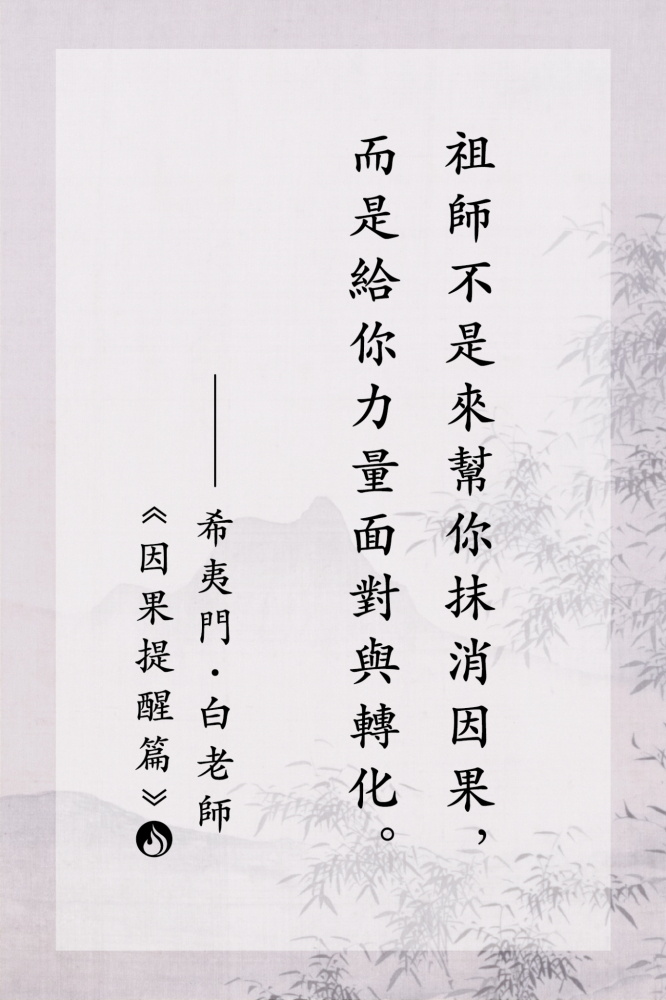 祖師不是來幫你抹消因果，
而是給你力量面對與轉化。
——希夷門·白老師
《因果提醒篇》